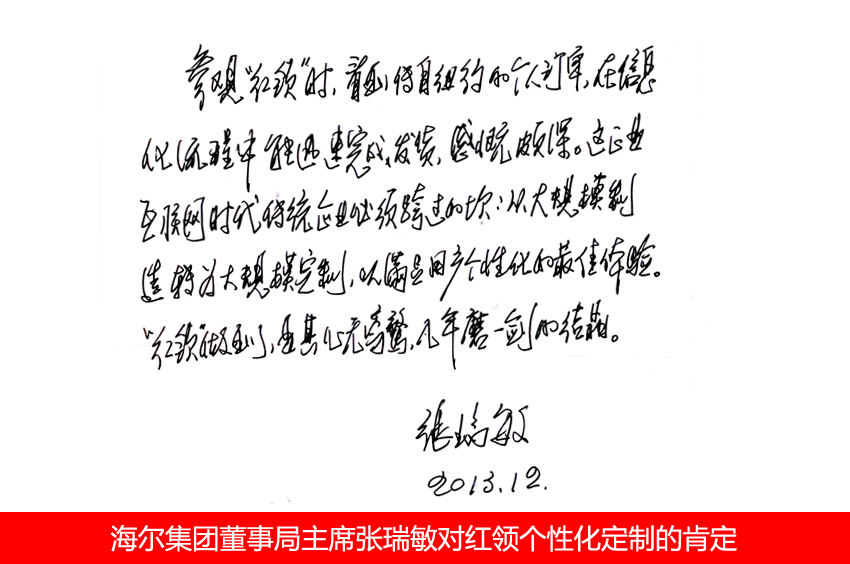 参观“红领”时,看到传自纽约的个人订单,在信息
化流程中能迅速完成、发货,感慨颇深。这正是
互联网时代传统企业必须跨过的坎:从大规模制
造转为大规模定制,以满足用户个性化的最佳体验。
“红领”做到了,是其心无旁骛,几年磨一剑的结晶。
张瑞敏
2013.12.
海尔集团董事局主席张瑞敏对红领个性化定制的肯定